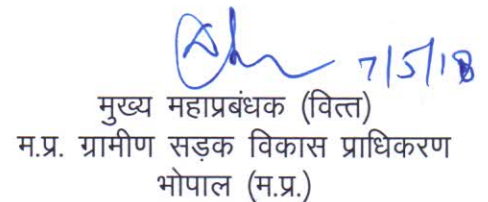 7/5/18
मुख्य महाप्रबंधक (वित्त)
म.प्र. ग्रामीण सड़क विकास प्राधिकरण
भोपाल (म.प्र.)